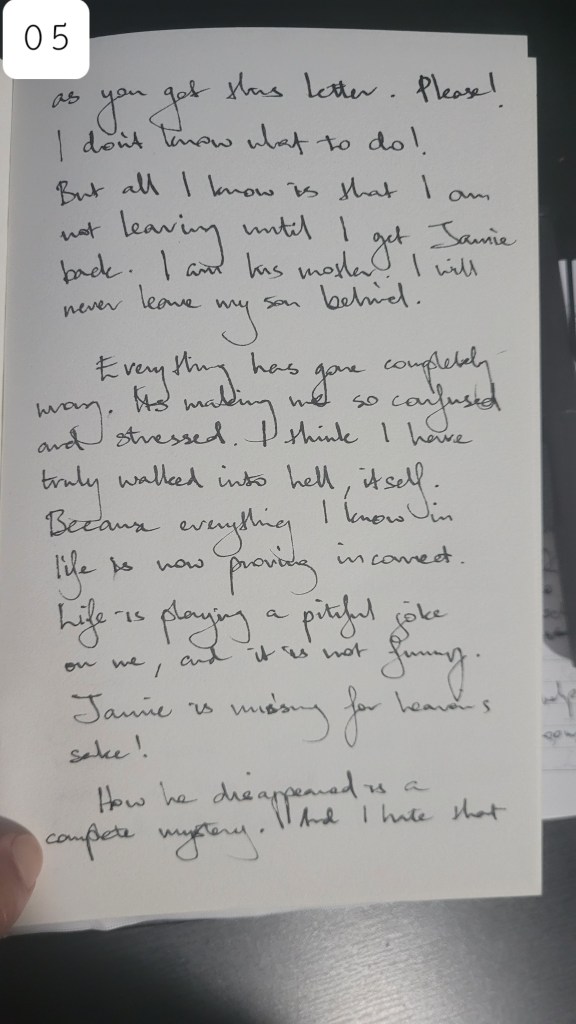 05
as you got this letter. Please!
I don't know what to do!
But all I know is that I am
not leaving until I get Jamie
back. I am his mother! I will
never leave my son behind.
Everything has gone completely
wrong. Its making me so confused
and stressed. I think I have
truly walked into hell, itself.
Because everything I know in
life is now proving incorrect.
Life is playing a pitiful joke
on me, and it is not funny.
Jamie is missing for heavens
sake!
How he disappeared is a
complete mystery. And I hate that